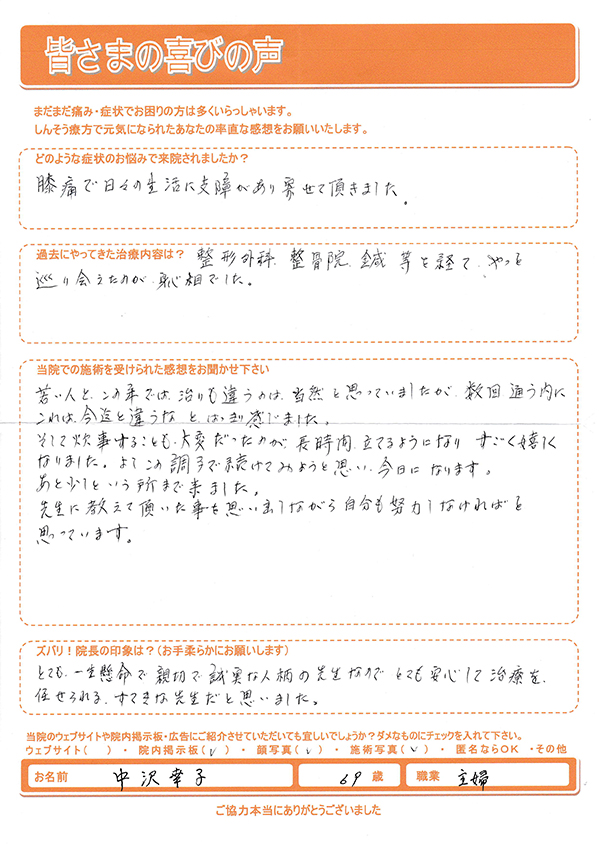 皆さまの喜びの声
まだまだ痛み・症状でお困りの方は多くいらっしゃいます。
しんそう療方で元気になられたあなたの率直な感想をお願いいたします。
どのような症状のお悩みで来院されましたか？
膝痛で日々の生活に支障があり寄せて頂きました。
過去にやってきた治療内容は？ 整形外科、整骨院、鍼 等を経て、やっと
巡り会えたのが
でした。
当院での施術を受けられた感想をお聞かせ下さい
若い人と、この年では、治りも違うのは、当然と思っていましたが、数回通う内に
これは、今迄と違うな と、はっきり感じました。
そして炊事することも、大変だったのが、長時間、立てるようになり すごく嬉しく
なりました。よしこの調子で続けてみようと思い、今日になります。
あと少しという所まで来ました。
先生に教えて頂いた事を思い出しながら自分も努力しなければと
思っています。
ズバリ！院長の印象は？（お手柔らかにお願いします）
とても、一生懸命で親切で誠実な人柄の先生なので とても安心して治療を、
任せられる、すてきな先生だと思いました。
当院のウェブサイトや院内掲示板・広告にご紹介させていただいても宜しいでしょうか？ダメなものにチェックを入れて下さい。
ウェブサイト（　）・ 院内掲示板（✓）・ 顔写真（✓）・ 施術写真（✓）・ 匿名ならOK ・その他
お名前 中沢幸子 69 歳 職業 主婦
ご協力本当にありがとうございました